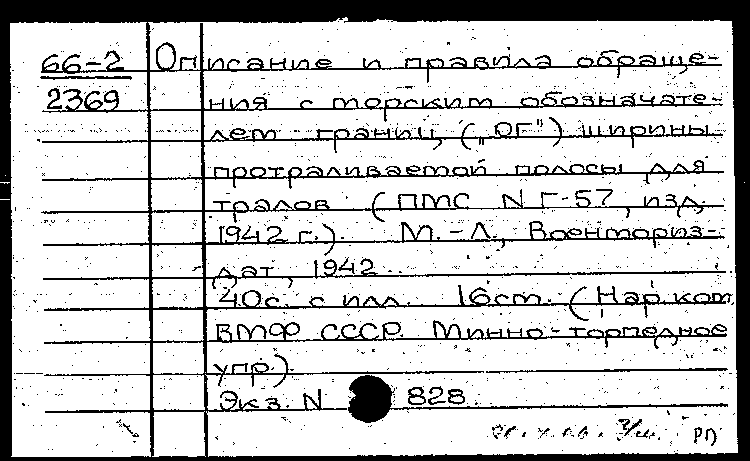 66-2
2369
Описание и правила обраще-
ния с морским обозначате-
лем границ („ОГ") ширины
протраливаемой полосы для
тралов (ПМС N Г-57, изд.
1942 г.). М.-Л., Военмориз-
дат, 1942
40с. с илл. 16см. (Нар.ком
ВМФ СССР. Минно-торпедное
упр.)
Экз. N 828
РП